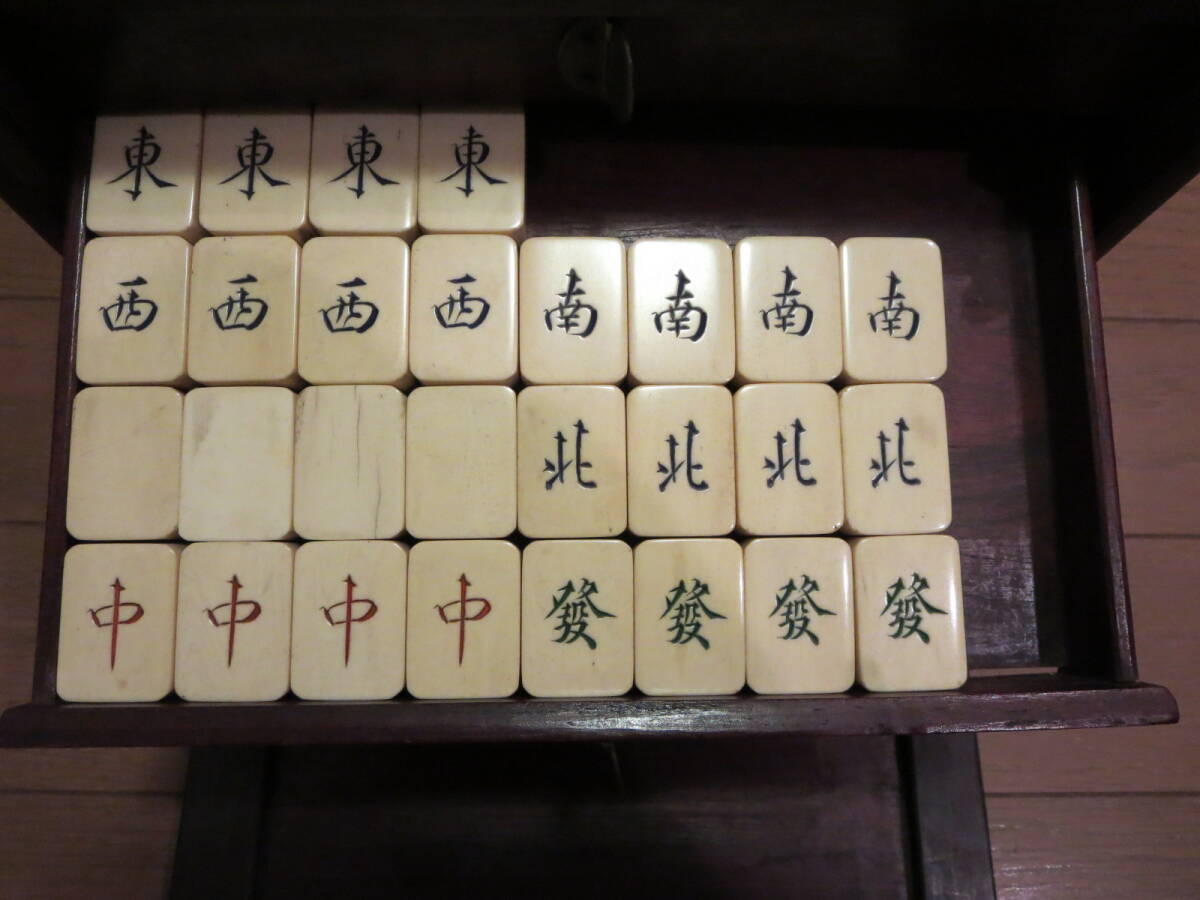 東 東 東 東
西 西 西 西 南 南 南 南
北 北 北 北
中 中 中 中 發 發 發 發